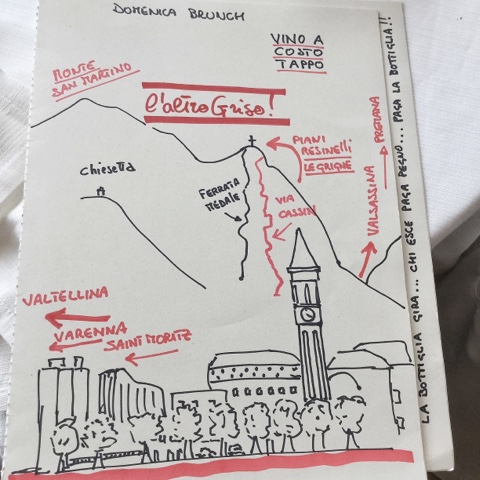 DOMENICA BRUNCH
VINO A
COSTO
TAPPO
MONTE
SAN MARTINO
l'altro Griso!
PIANI
RESINELLI
LE GRIGNE
Chiesetta
FERRATA
MEDALE
VIA
CASSIN
VALSASSINA
PREMANA
VALTELLINA
VARENNA
SAINT MORITZ
LA BOTTIGLIA GIRA... CHI ESCE PAGA PEGNO... PAGA LA BOTTIGLIA!!